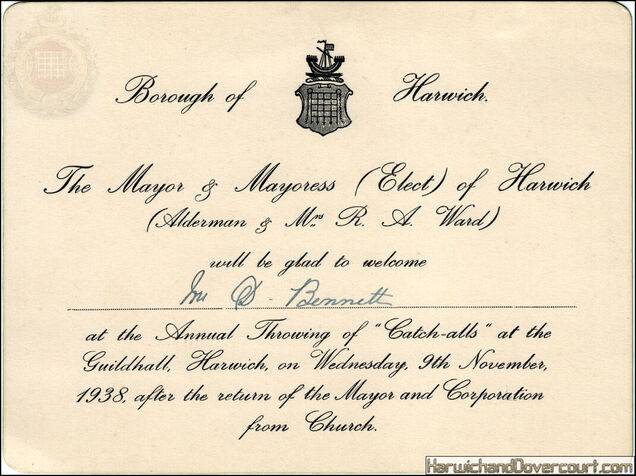 Borough of Harwich.
The Mayor & Mayoress (Elect) of Harwich
(Alderman & Mrs R. A. Ward)
will be glad to welcome
Mr D. Bennett
at the Annual Throwing of "Catch-alls" at the
Guildhall, Harwich, on Wednesday, 9th November,
1938, after the return of the Mayor and Corporation
from Church.
HarwichandDovercourt.com